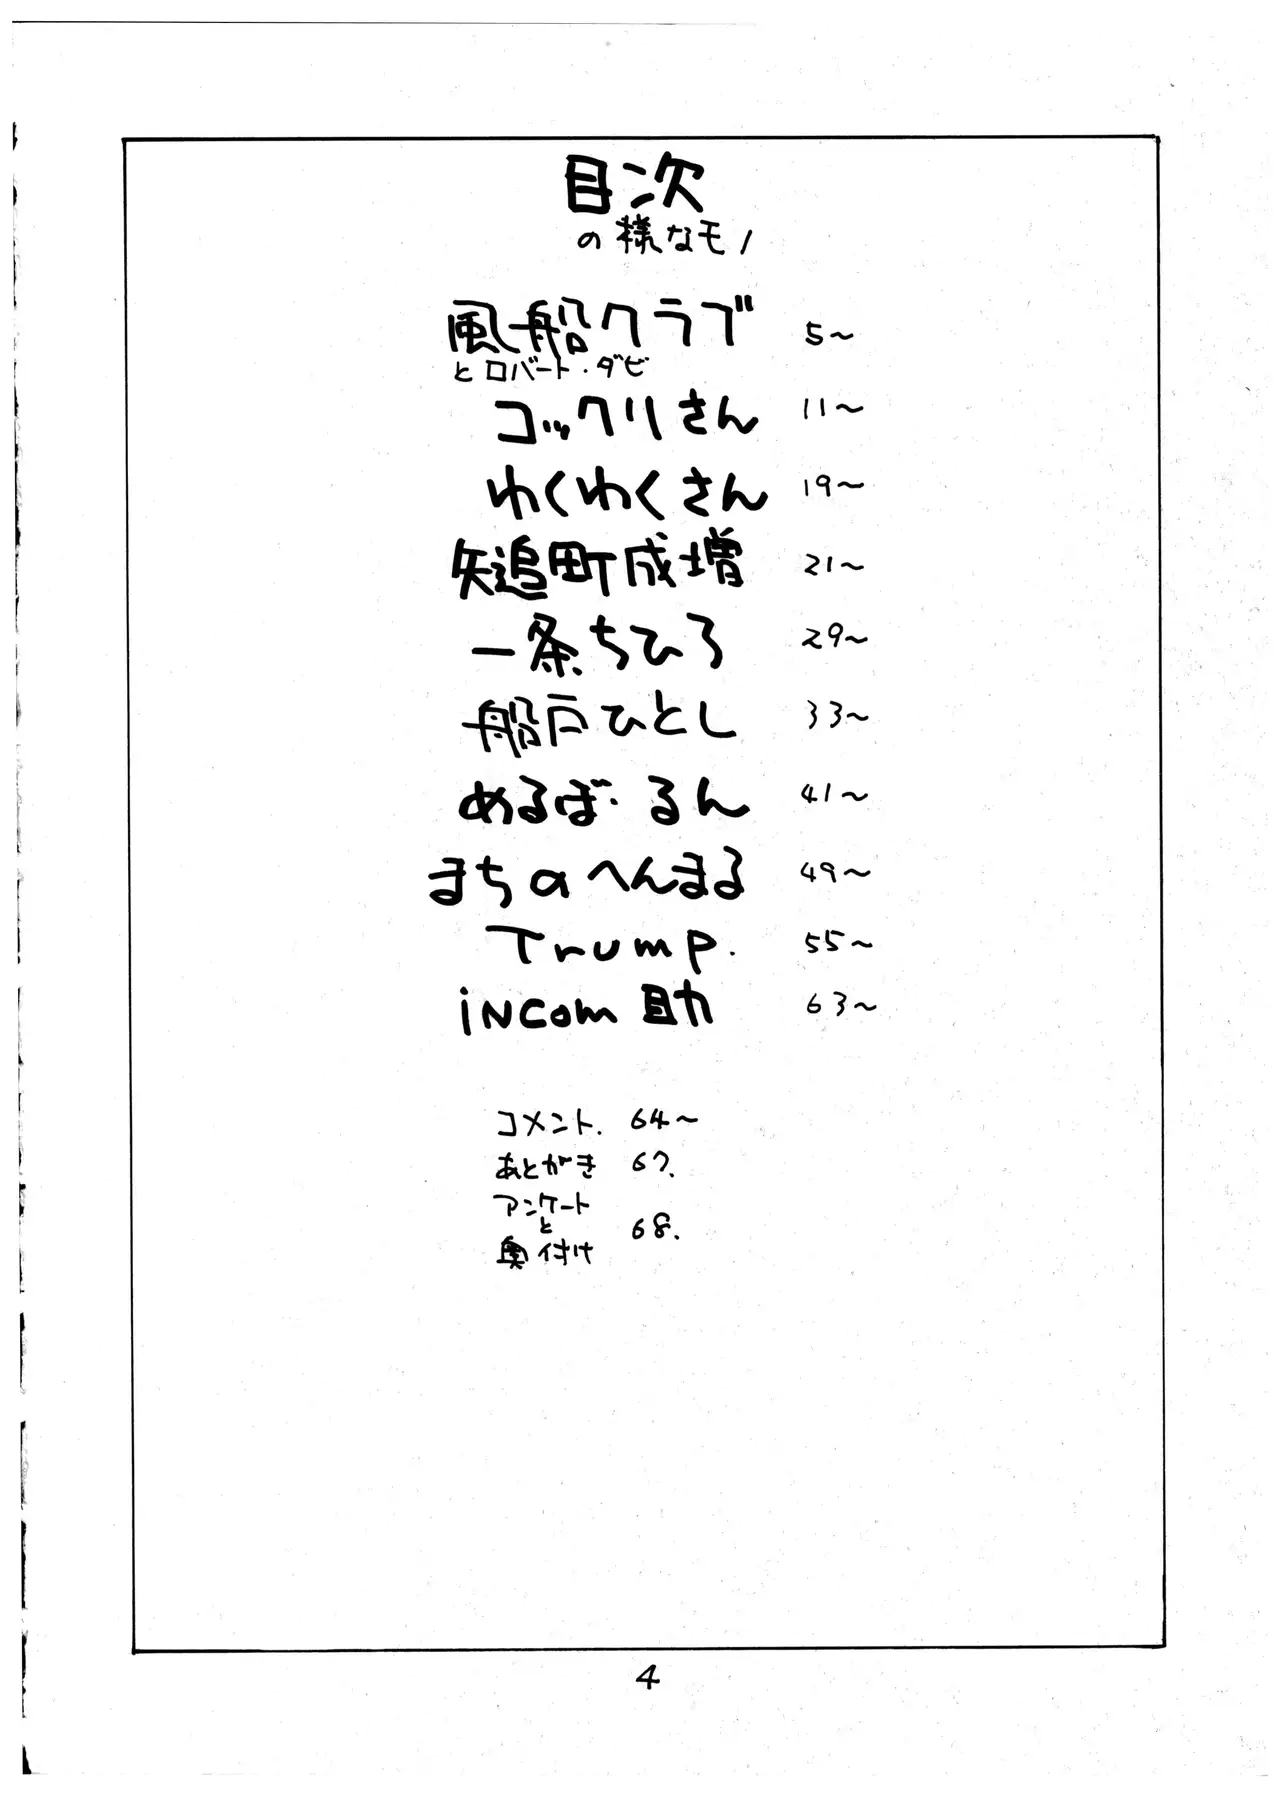 目次
の様なモノ
風船クラブ 5〜
とロバート・ダビ
コックリさん 11〜
わくわくさん 19〜
矢追町成増 21〜
一条ちひろ 29〜
船戸ひとし 33〜
めるぼ・るん 41〜
まちのへんまる 49〜
Trump. 55〜
iNCom助 63〜
コメント. 64〜
あとがき 67.
アンケート
と 68.
奥付け
4